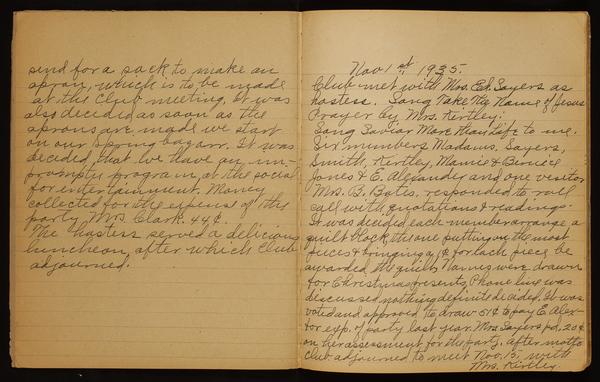 send for a sack to make an
apron, which is to be made
at the Club meeting. It was
also decided as soon as the
aprons are made we start
on our Spring bazarr. It was
decided that we have an im-
promptu program, at the social
for entertainment. Money
collected for the expense of the
party, Mrs Clark. 44¢.
The hostess served a delicious
luncheon, after which Club
adjourned.
Nov 1st 1935.
Club met with Mrs. Ed. Sayers as
hostess. Song Take My Name of Jesus
Prayer by Mrs. Kirtley.
Song Savior More Than Life to me.
Six members Madams. Sayers,
Smith, Kirtley, Mamie & Birnice
Jones & E. Alexander and one visitor
Mrs. B. Batis, responded to roll
call with quotations & readings.
It was decided each member arrange a
quilt block, the one putting on the most
pieces & bringing a ¢ for each piece be
awarded the quilt. Names were drawn
for Christmas presents. Phone line was
discussed nothing definite decided. It was
voted and approved to draw 51¢ to pay E. Alex-
for exp. of party last year. Mrs Sayers pd. 20¢
on her assessment for the party. After motto
Club adjourned to meet Nov. 15, with
Mrs. Kirtley